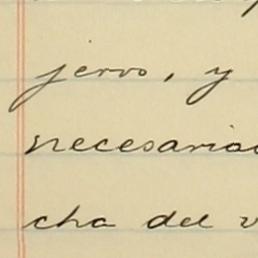 jervo, y
necesaria
cha del v